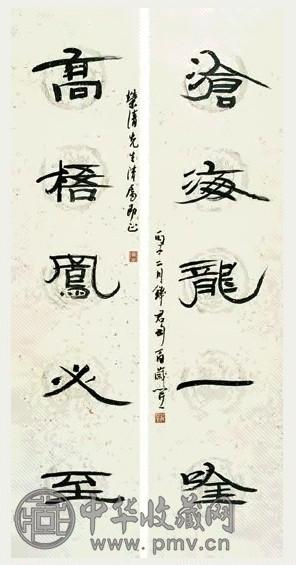 滄海龍一唫
丙子二月錢君匋
榮清先生屬即正
高梧鳳必至
中华收藏网
www.pmv.cn